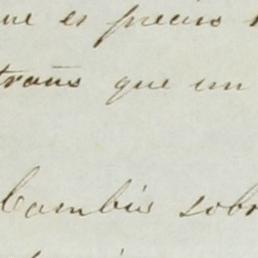 que es preciso
traños que un
Cambio sobr